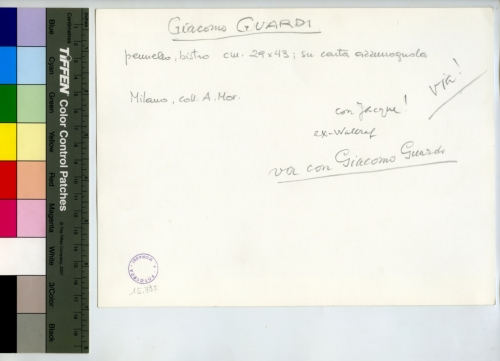 Giacomo GUARDI
pennello, bistro cm. 29x43; su carta azzurrognola
Milano, coll. A. Mor.
via!
con Jacque!
ex-Wallraf
va con Giacomo Guardi
FOTOTECA
15.757
Blue
Cyan
Green
Yellow
Red
Magenta
White
3/Color
Black
Centimetres
TIFFEN Color Control Patches
© The Tiffen Company, 2007